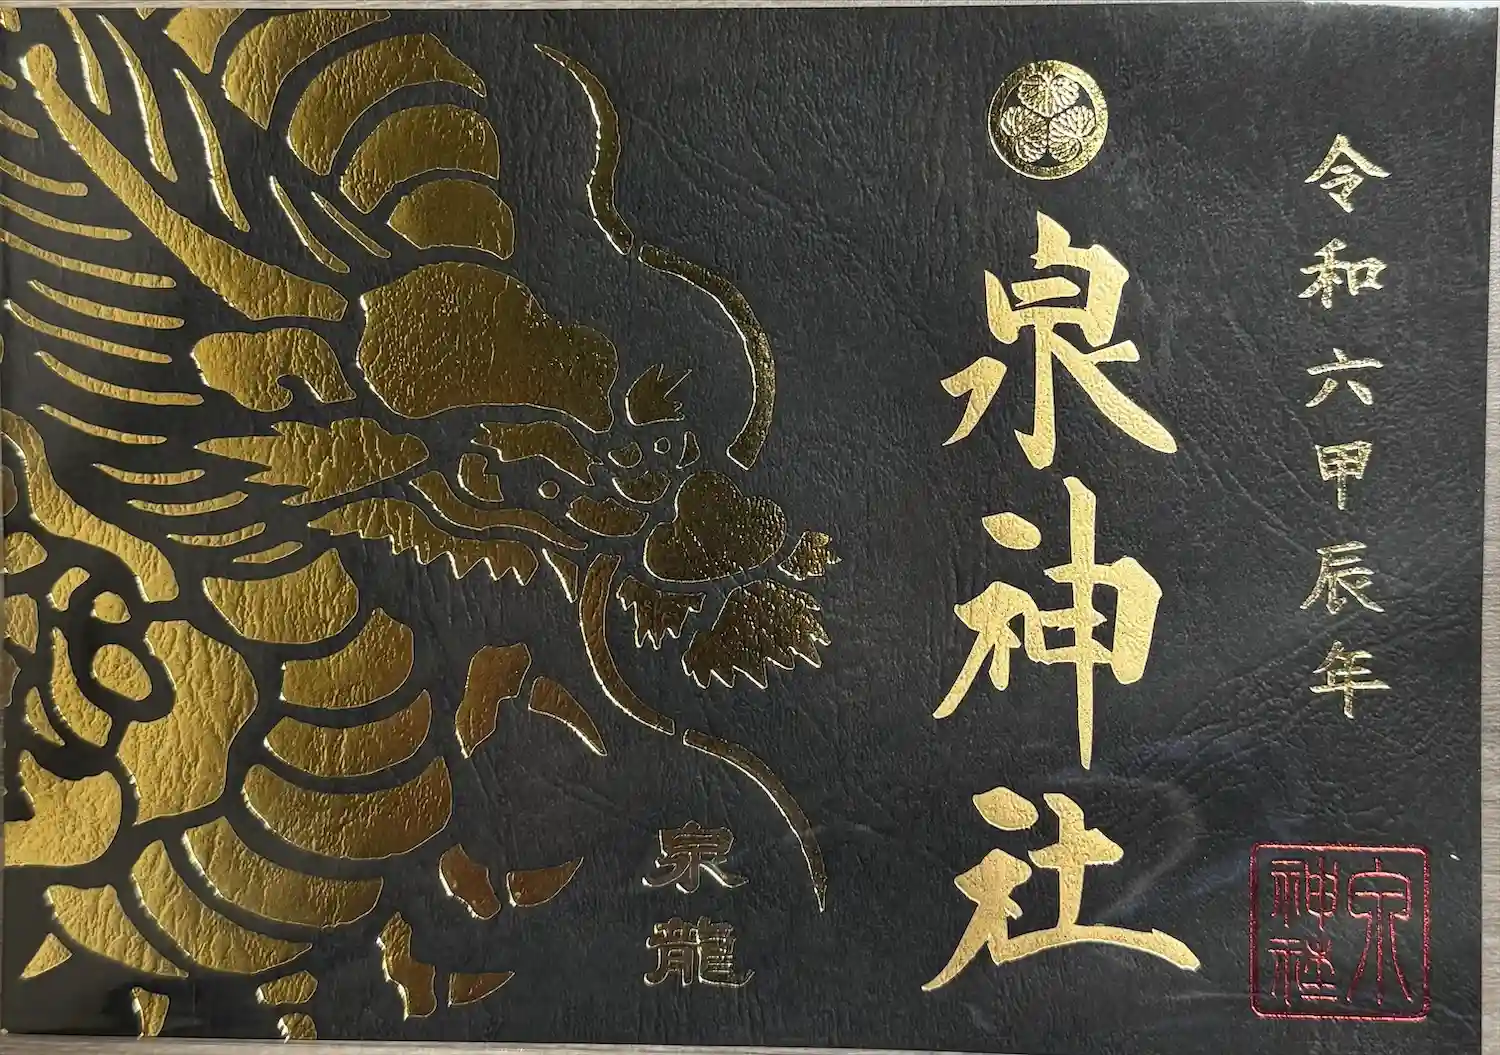 令和六甲辰年
泉神社
泉神社
泉龍